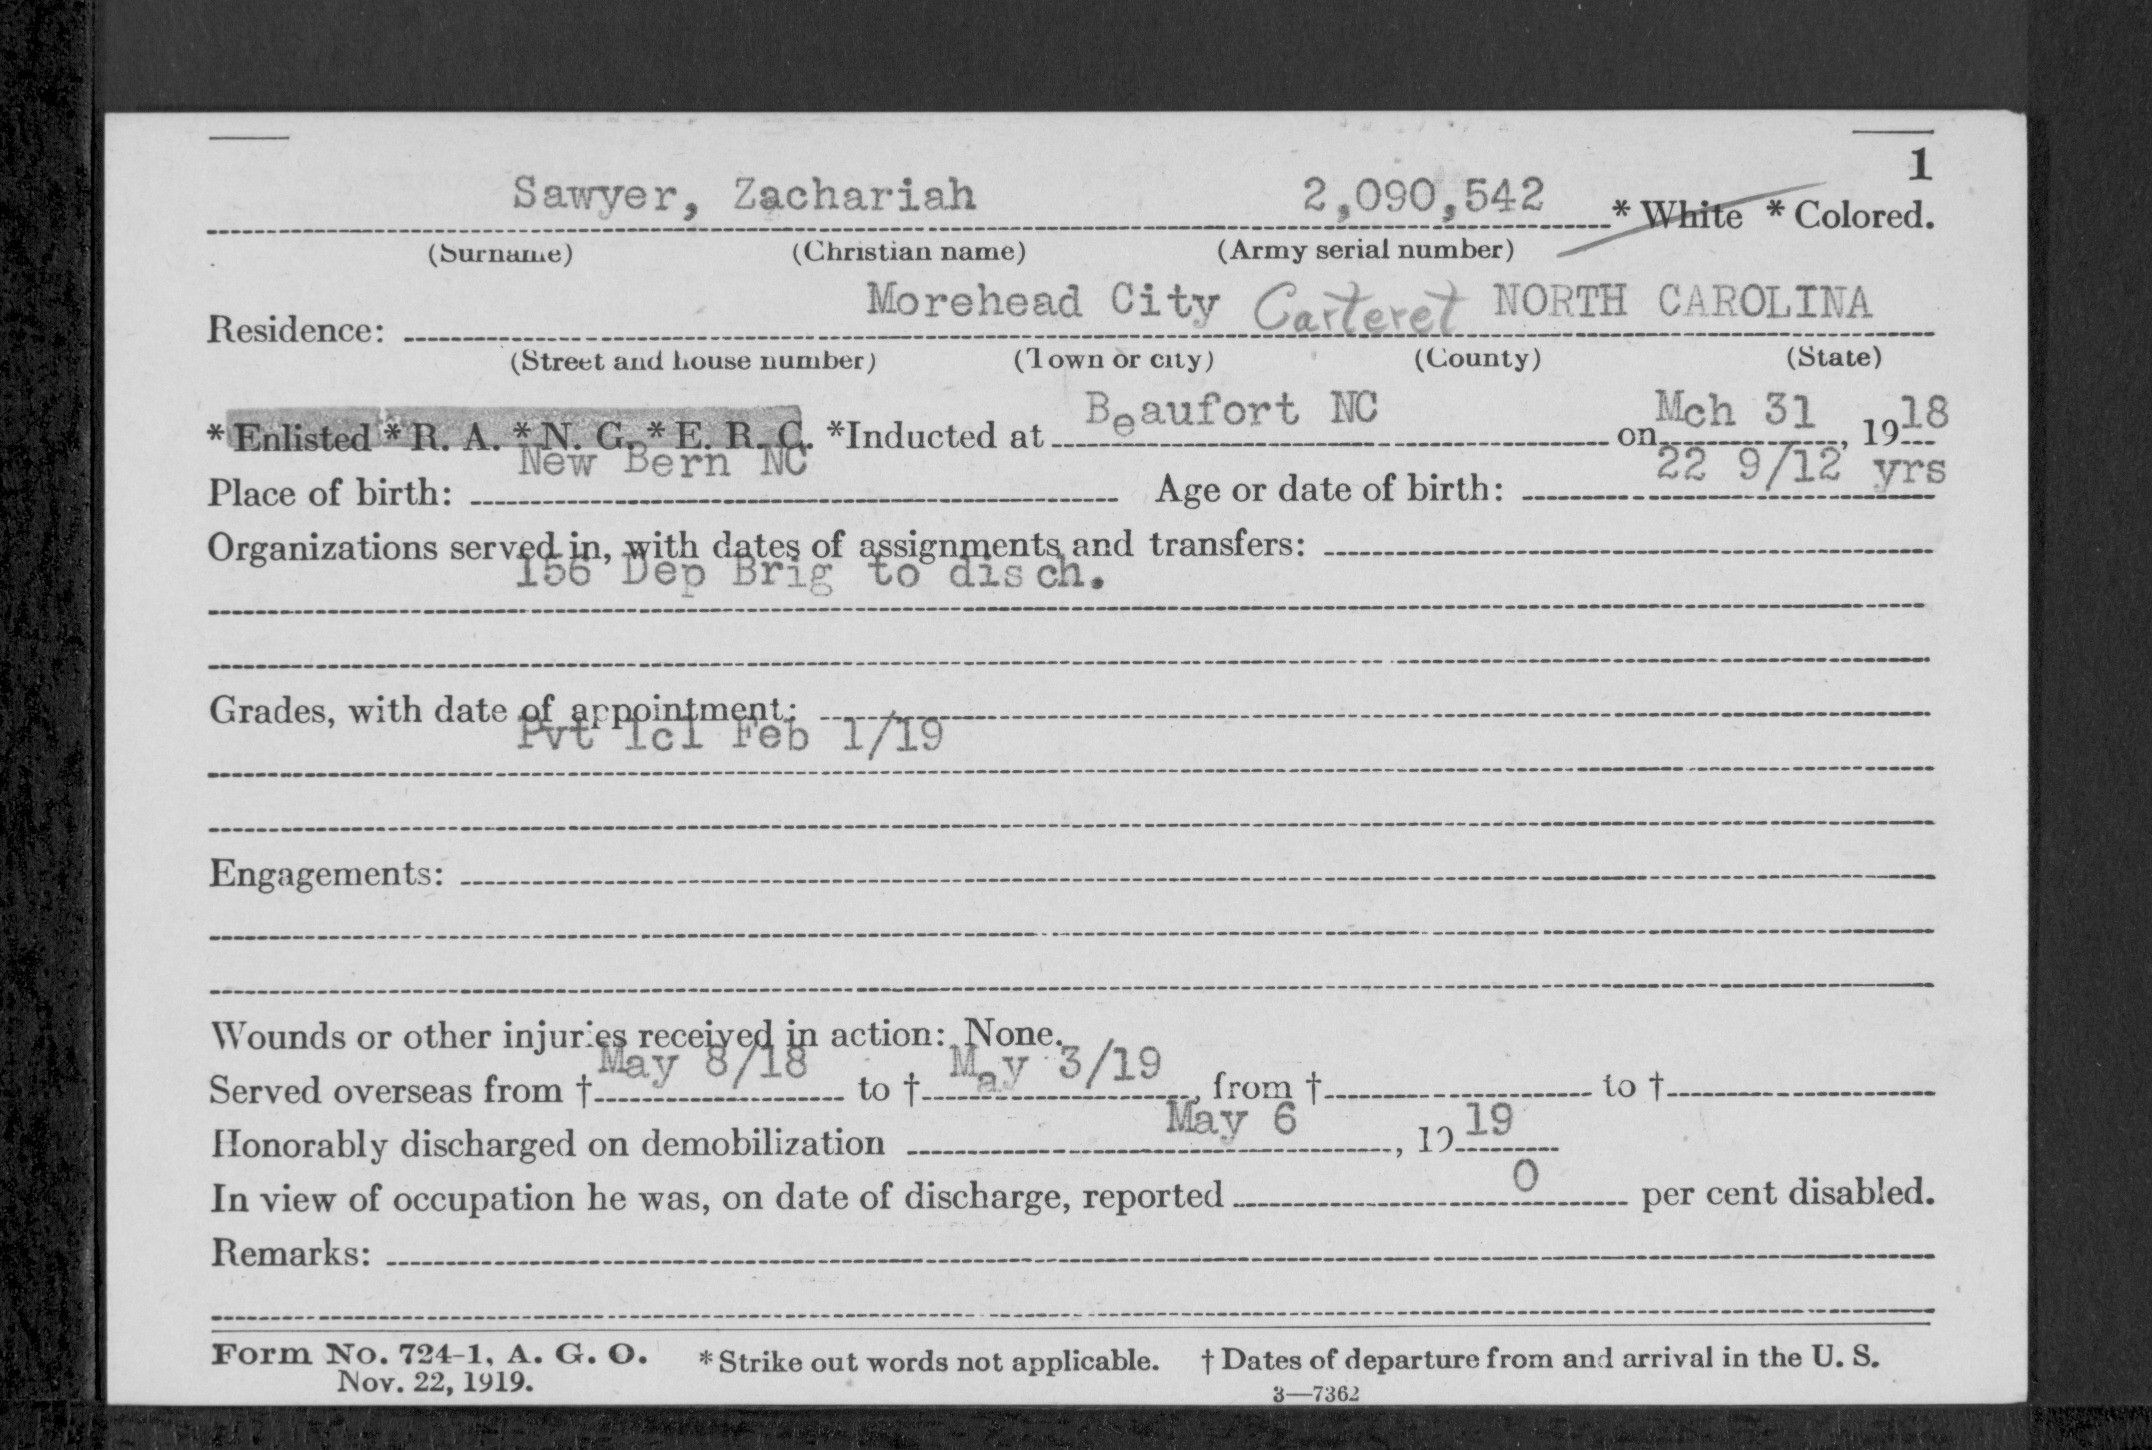 1
Sawyer, Zachariah 2,090,542 * White * Colored.
(Surname) (Christian name) (Army serial number)
Residence: Morehead City Carteret NORTH CAROLINA
(Street and house number) (Town or city) (County) (State)
* Enlisted * R. A. * N. G. * E. R. C. *Inducted at Beaufort NC on Mch 31, 1918
Place of birth: New Bern NC Age or date of birth: 22 9/12 yrs
Organizations served in, with dates of assignments and transfers:
156 Dep Brig to disch.
Grades, with date of appointment:
Pvt 1cl Feb 1/19
Engagements:
Wounds or other injuries received in action: None.
Served overseas from † May 8/18 to † May 3/19, from † to †
Honorably discharged on demobilization May 6, 1919
In view of occupation he was, on date of discharge, reported 0 per cent disabled.
Remarks:
Form No. 724-1, A. G. O. * Strike out words not applicable. † Dates of departure from and arrival in the U. S.
Nov. 22, 1919. 3—7362